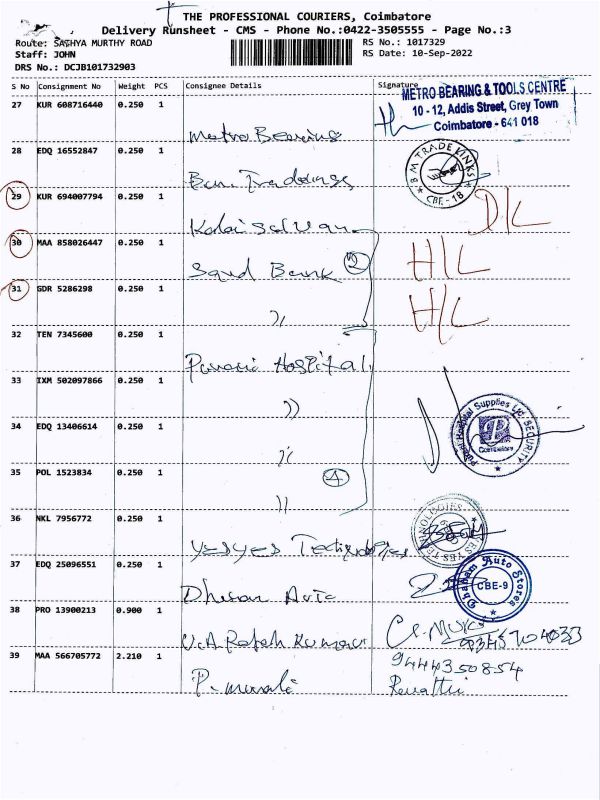 THE PROFESSIONAL COURIERS, Coimbatore
Delivery Runsheet - CMS - Phone No.:0422-3505555 - Page No.:3
Route: SATHYA MURTHY ROAD
RS No.: 1017329
Staff: JOHN
RS Date: 10-Sep-2022
DRS No.: DCJB101732903
S No Consignment No Weight PCS Consignee Details Signature
METRO BEARING & TOOLS CENTRE
10 - 12, Addis Street, Grey Town
Coimbatore - 641 018
27 KUR 608716440 0.250 1
Metro Bearing
28 EDQ 16552847 0.250 1
B M TRADE LINKS
CBE - 18
29 KUR 694007794 0.250 1
D/L
Kalaiselvan
30 MAA 858026447 0.250 1
2
H/L
Bank
31 GDR 5286298 0.250 1
H/L
"
32 TEN 7345600 0.250 1
Hospital
33 IXM 502097866 0.250 1
"
34 EDQ 13406614 0.250 1
Hospital Supplies Ltd SECURITY
P
Coimbatore
"
35 POL 1523834 0.250 1
4
"
36 NKL 7956772 0.250 1
YES YES TECHNOLOGIES
yesyes Technologies
37 EDQ 25096551 0.250 1
Auto Stores
CBE-9
38 PRO 13900213 0.900 1
V.A Rajesh Kumar
39 MAA 566705772 2.210 1
9444350854
P. murali
Revathi